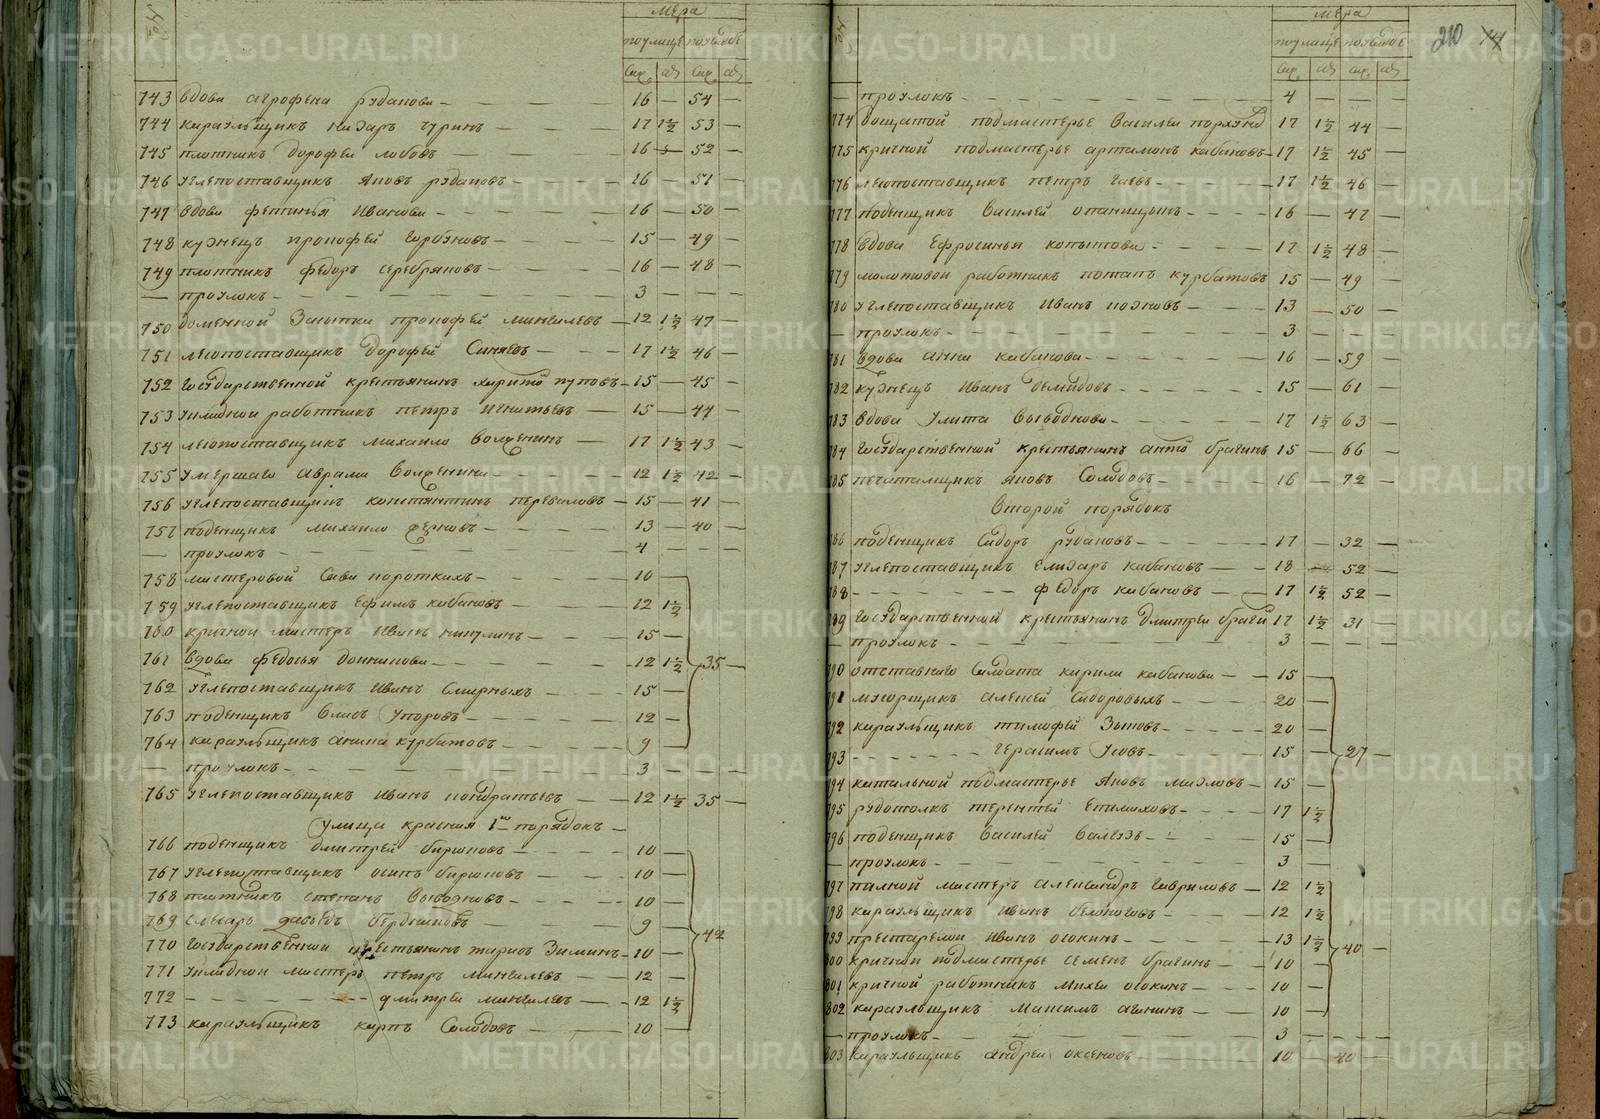 № мера
по улице по усадбе
саж. ар. саж. ар.
743 вдова агрофена рубанова 16 — 54 —
744 караульщикъ назаръ чуринъ 17 1½ 53 —
745 плотникъ дорофеи лобовъ 16 52 —
746 углепоставщикъ яковъ рубановъ 16 — 51 —
747 вдова фетинья Иванова 16 — 50 —
748 кузнецъ прокофей горбуновъ 15 — 49 —
749 плотникъ федоръ серебряковъ 16 — 48 —
— проулокъ 3 — — —
750 доменной Засыпка прокофей 12 1½ 47 —
751 лесопоставщикъ дорофей Синяевъ 17 1½ 46 —
752 государственной крестьянинъ харито пуповъ 15 — 45 —
753 работникъ петръ игнатьевъ 15 — 44 —
754 лесопоставщикъ михаило 17 1½ 43 —
755 умершаго аврама 12 1½ 42 —
756 углепоставщикъ константинъ переваловъ 15 — 41 —
757 поденщикъ михаило 13 — 40 —
— проулокъ 4 — — —
758 мастеровой Сава короткихъ 10 —
759 углепоставщикъ Ефимъ кабановъ 12 1½
760 кричной мастеръ Иванъ никулинъ 15 —
761 вдова федосья 12 1½ 35 —
762 углепоставщикъ Иванъ Смирныхъ 15 —
763 поденщикъ Упоровъ 12 —
764 караульщикъ аника курбатовъ 9 —
— проулокъ 3 — — —
765 углепоставщикъ Иванъ кондратьевъ 12 1½ 35 —
Улица красная 1й порядокъ
766 поденщикъ дмитрей бирюковъ 10 —
767 углепоставщикъ осипъ бирюковъ 10 —
768 плотникъ степанъ Выводновъ 10 —
769 слесарь давыдъ 9 — 42
770 государственной крестьянинъ Зиминъ 10 —
771 мастеръ петръ 12 —
772 дмитрей 12 1½
773 караульщикъ карпъ Солодовъ 10 —
№ мера 210
по улице по усадбе
саж. ар. саж. ар.
— проулокъ 4 — — —
774 подмастерье Василеи 17 1½ 44 —
775 кричной подмастерье артамонъ кабановъ 17 1½ 45 —
776 лесопоставщикъ петръ 17 1½ 46 —
777 поденщикъ Василей 16 — 47 —
778 вдова Ефросинья копытова 17 1½ 48 —
779 молотовой работникъ потапъ курбатовъ 15 — 49 —
780 углепоставщикъ Иванъ 13 — 50 —
— проулокъ 3 — — —
781 вдова анна кабанова 16 — 59 —
782 кузнецъ Иванъ демидовъ 15 — 61 —
783 вдова Улита Выводнова 17 1½ 63 —
784 государственной крестьянинъ брагинъ 15 — 66 —
785 печатальщикъ яковъ Солодовъ 16 — 72 —
Второй порядокъ
786 поденщикъ Сидоръ рубановъ 17 — 32 —
787 углепоставщикъ Елизаръ кабановъ 18 — 52 —
788 федоръ кабановъ 17 1½ 52 —
789 государственной крестьянинъ дмитреи браги 17 1½ 31 —
— проулокъ 3 — — —
790 отставнаго Салдата кирила кабанова 15 —
791 алексей Сидоровыхъ 20 —
792 караульщикъ тимофей Зыковъ 20 —
793 герасимъ Усовъ 15 — 27 —
794 подмастерье яковъ 15 —
795 рудотолкъ терентей 17 1½
796 поденщикъ василей 15 —
— проулокъ 3 —
797 пилной мастеръ александръ гавриловъ 12 1½
798 караульщикъ иванъ белоноговъ 12 1½
799 престарелой Иванъ осокинъ 13 1½ 40 —
800 кричной подмастерье семенъ брагинъ 10 —
801 кричной работникъ михеи осокинъ 10 —
802 караульщикъ Максимъ 10 —
— проулокъ 3 — — —
803 караульщикъ андреи оксеновъ 10 40 —
METRIKI.GASO-URAL.RU